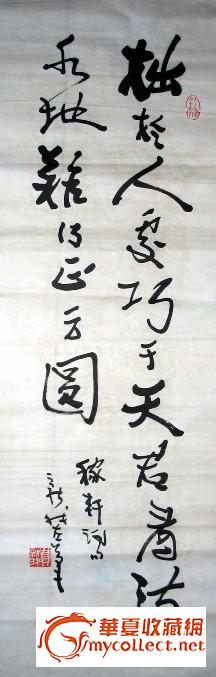 拙於人處巧于天君看流
水地難得正方圓
稼軒詞句
華夏收藏網
mycollect.net